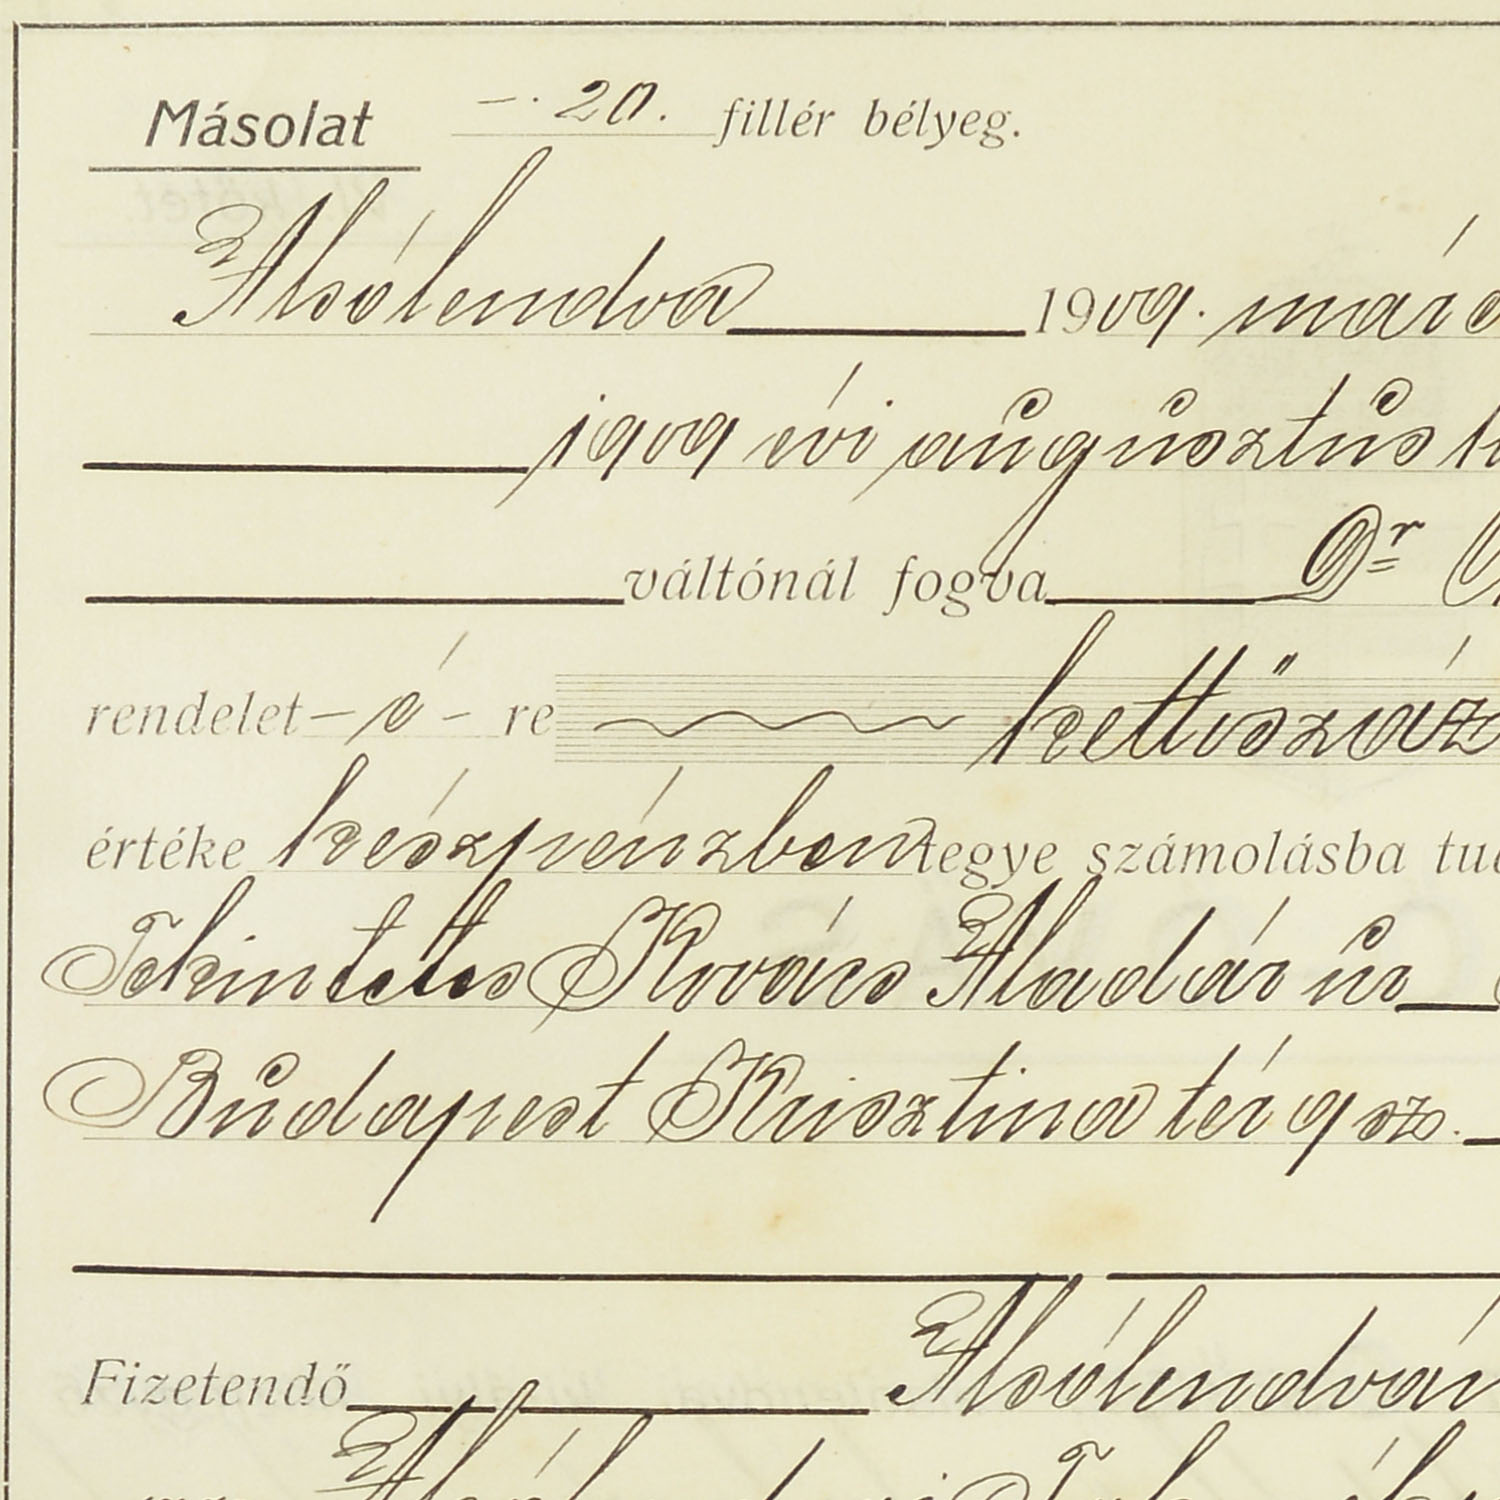 Másolat –. 20. fillér bélyeg.
Alsólendva 1909. márc
1909 évi augusztus
váltónál fogva Dr
rendelet – é – re kettőszáz
érték készpénzben tegye számolásba tu
Tekintetes Kovács Aladár úr
Budapest Krisztina tér 9 sz.
Fizetendő Alsólendván